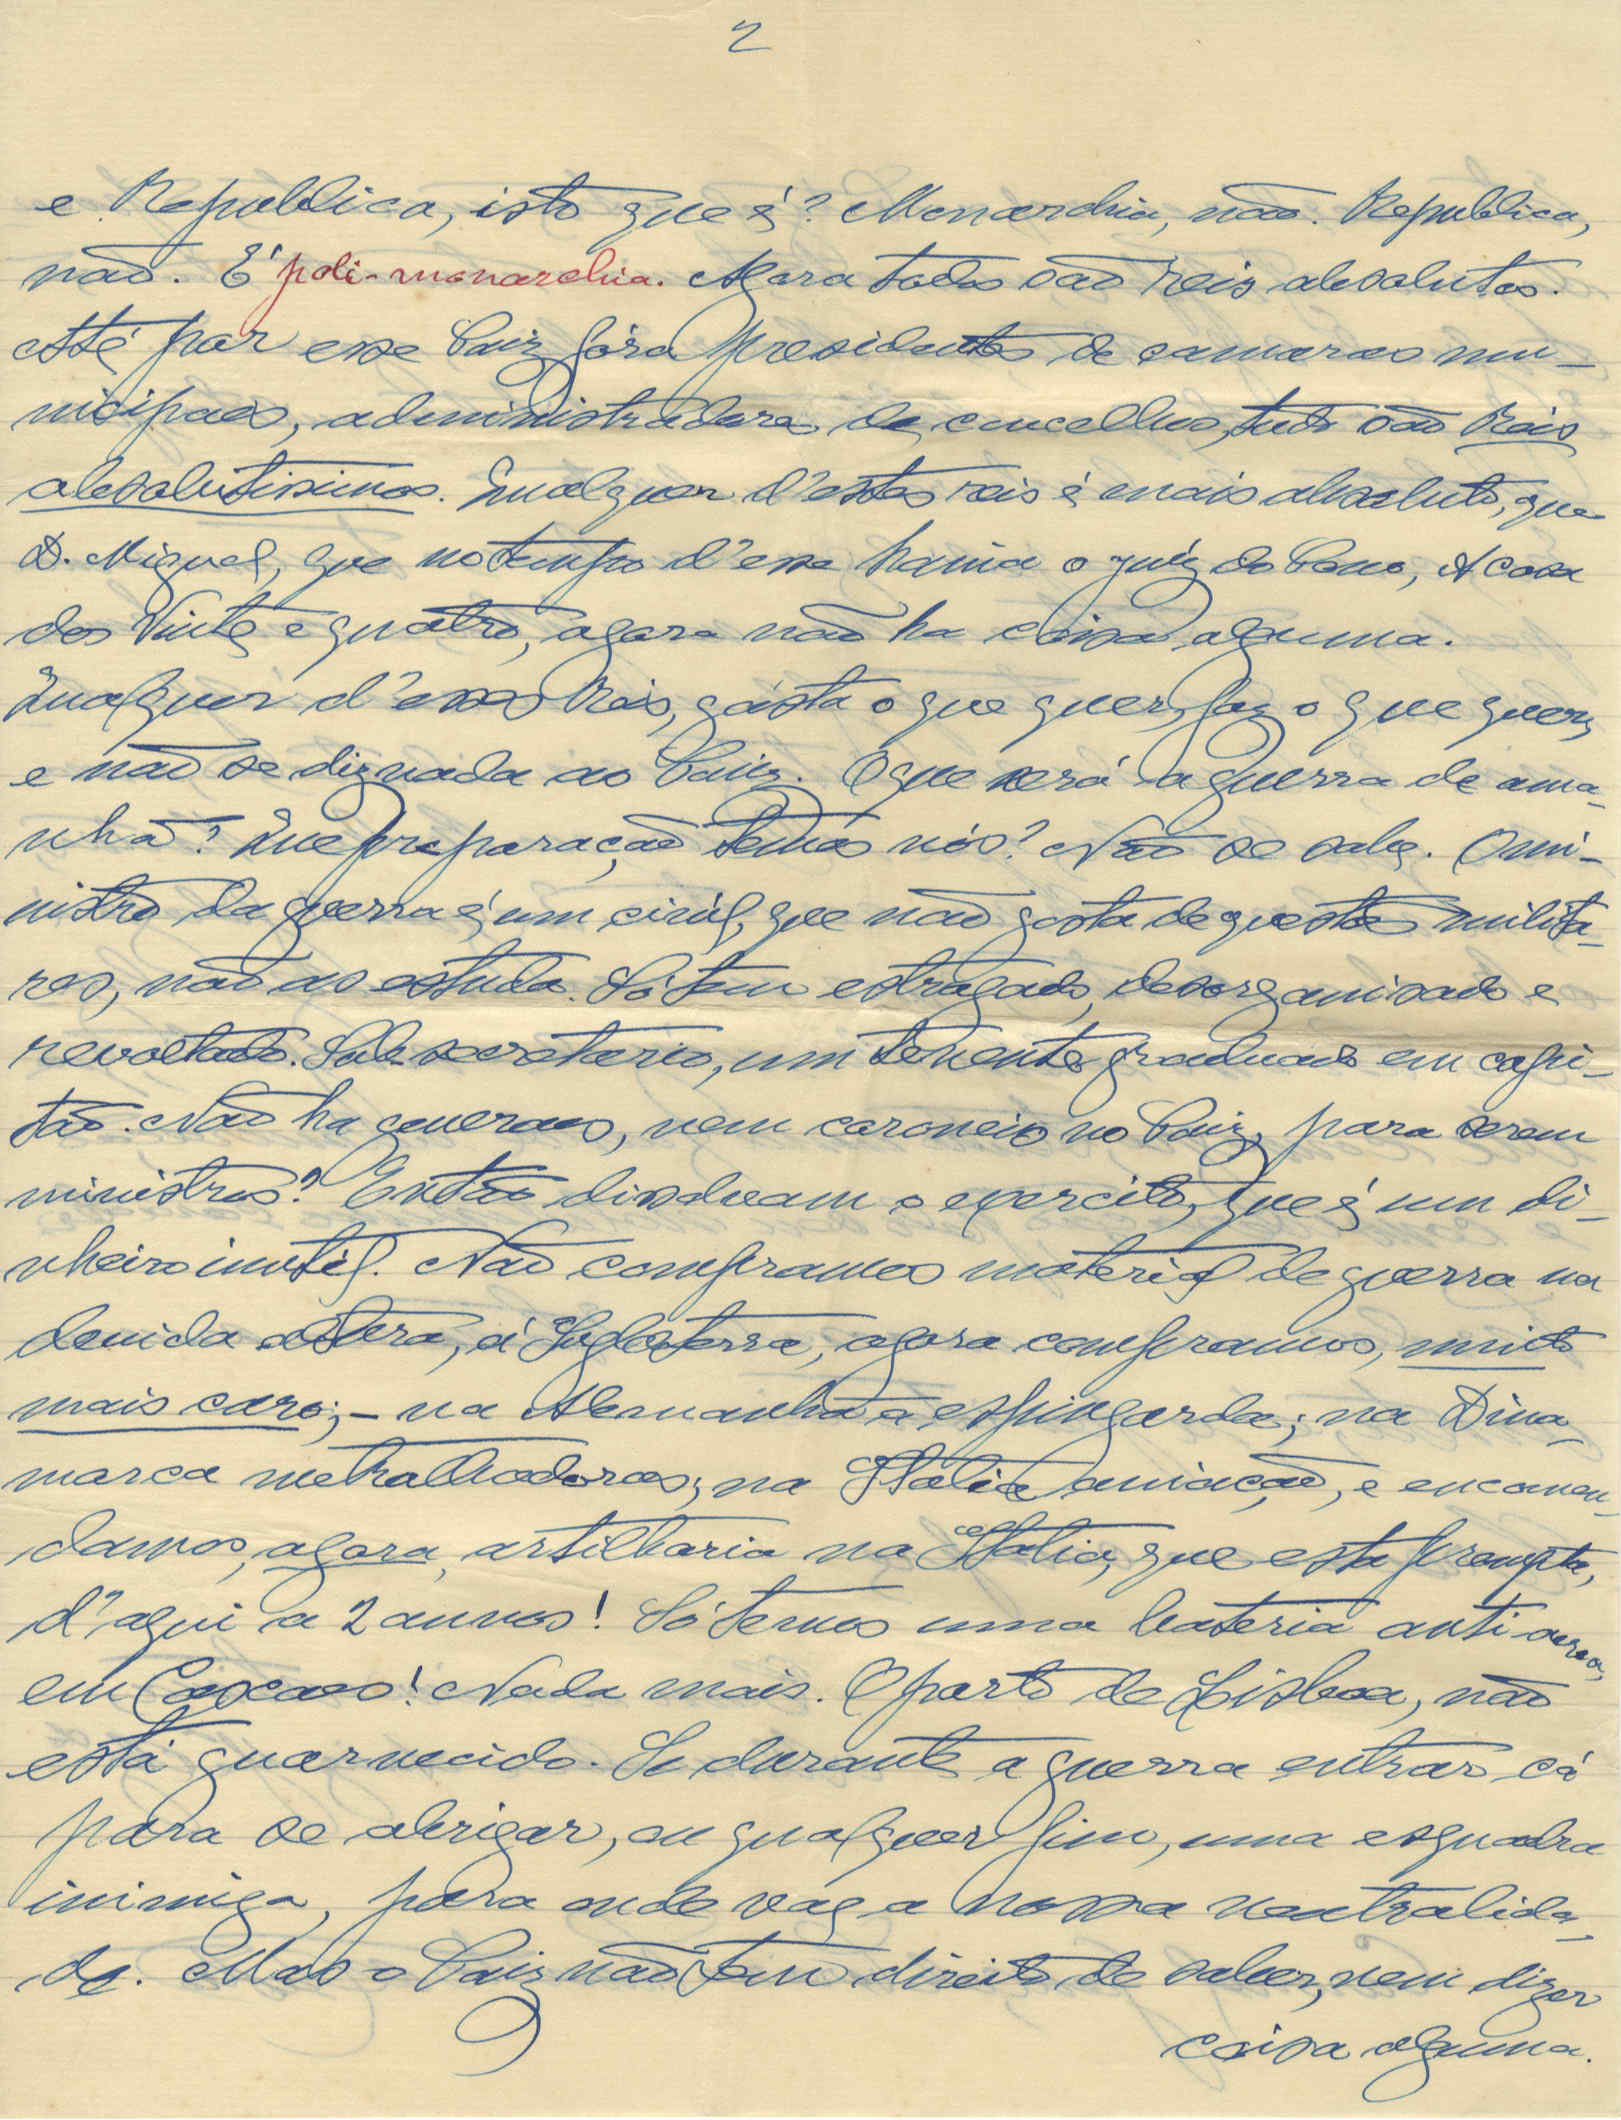 2
e Republica, isto que é? Monarchia, não. Republica,
não. É poli-monarchia. Agora todos são reis absolutos.
Até por esse Paiz fóra presidentes de camaras mu-
nicipaes, administradores de concelhos, tudo são Reis
absolutissimos. Qualquer d'estes reis é mais absoluto, que
D. Miguel, que no tempo d'esse havia o juiz do Povo, A casa
dos Vinte e quatro, agora não ha coisa alguma.
Qualquer d'esses Reis, gasta o que quer, faz o que quer,
e não se diz nada ao Paiz. O que será a guerra de ama-
nhã? Que preparação temos nós? Não se sabe. O mi-
nistro da guerra é um civil, que não gosta de questões milita-
res, não as estuda. Só tem estragado, desorganisado e
revoltado. Sub-secretario, um tenente graduado em capi-
tão. Não ha generaes, nem coroneis no Paiz, para serem
ministros? Então dissolvam o exercito, que é um di-
nheiro inutil. Não compramos material de guerra na
devida altura, á Inglaterra, agora compramos, muito
mais caro; - na Alemanha a espingarda; na Dina-
marca metralhadoras; na Italia aviação, e encomen-
damos, agora, artilharia na Italia, que está prompta,
d'aqui a 2 annos! Só temos uma bateria anti-aerea,
em Cascaes! Nada mais. O porto de Lisboa, não
está guarnecido. Se durante a guerra entrar cá
para se abrigar, ou qualquer fim, uma esquadra
inimiga, para onde vae a nossa neutralida-
de. Mas o Paiz não tem direito de saber, nem dizer
coisa alguma.